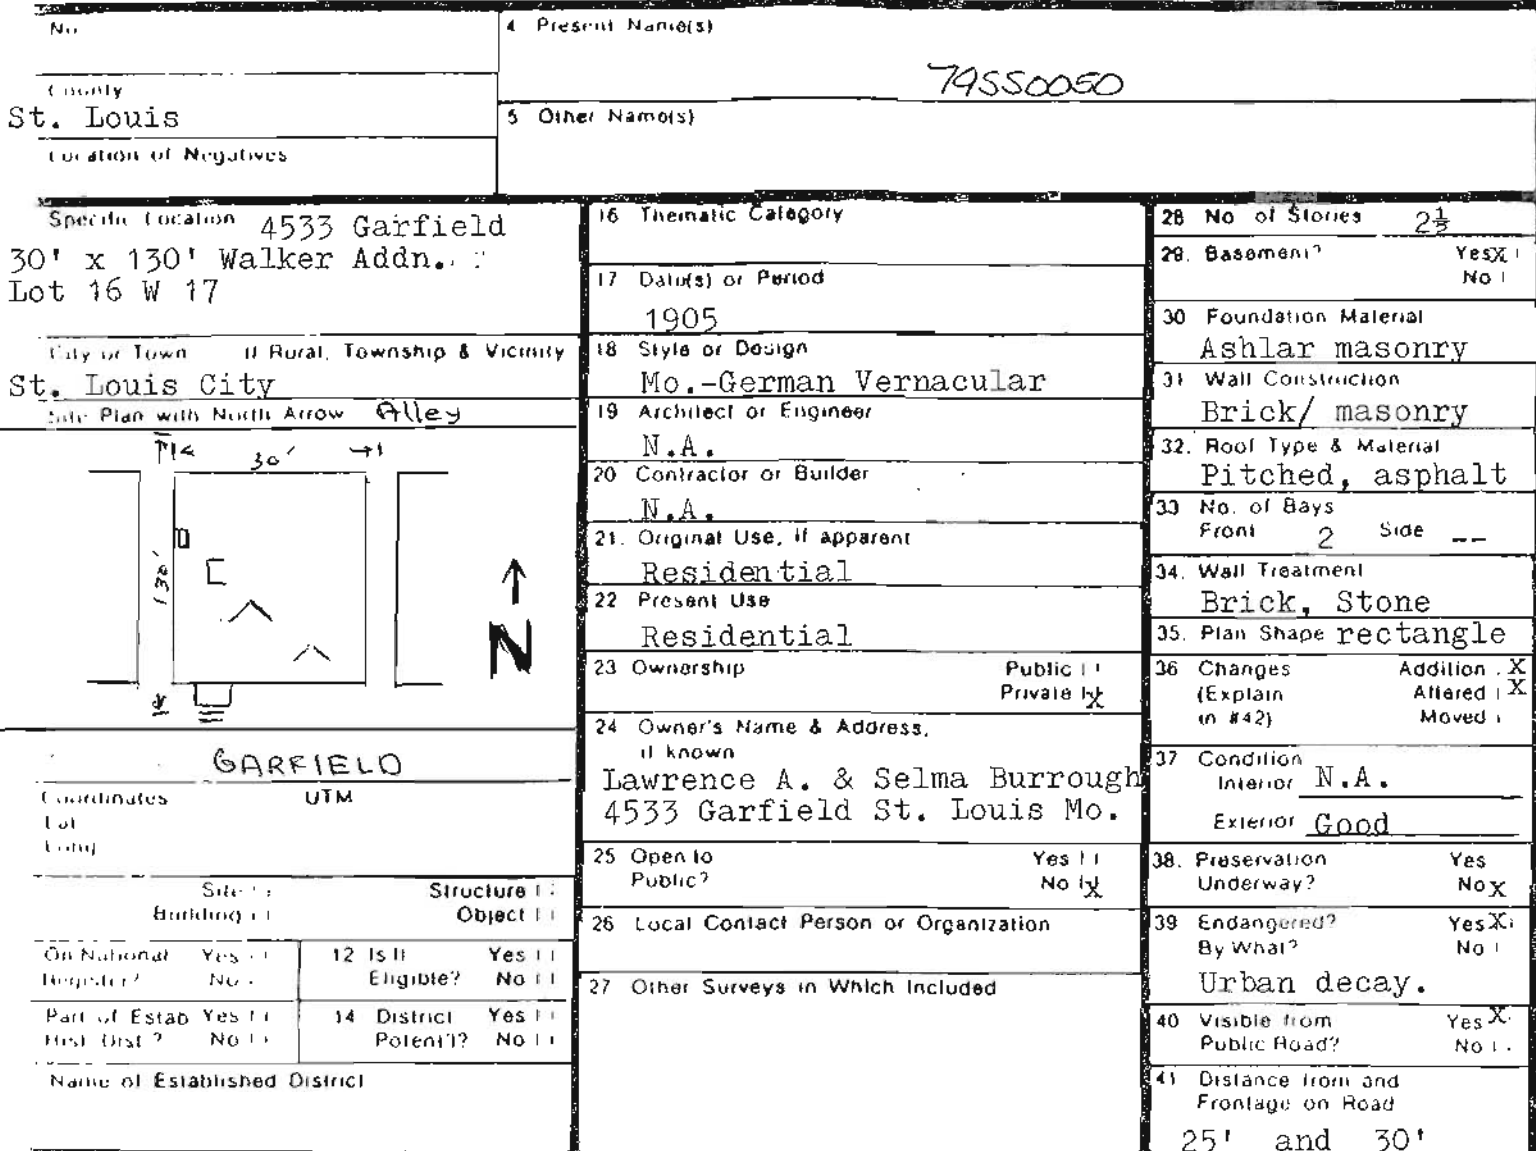 No
4 Present Name(s)
79SS0050
County
St. Louis
5 Other Name(s)
Location of Negatives
Specific Location 4533 Garfield
30' x 130' Walker Addn.
Lot 16 W 17
City or Town If Rural, Township & Vicinity
St. Louis City
Site Plan with North Arrow Alley
30'
130'
N
GARFIELD
Coordinates UTM
Lat
Long
Site
Structure
Building
Object
On National Register? Yes No
12 Is It Eligible? Yes No
Part of Estab Hist Dist? Yes No
14 District Potent'l? Yes No
Name of Established District
16 Thematic Category
17 Date(s) or Period
1905
18 Style or Design
Mo.-German Vernacular
19 Architect or Engineer
N.A.
20 Contractor or Builder
N.A.
21. Original Use, if apparent
Residential
22 Present Use
Residential
23 Ownership Public
Private X
24 Owner's Name & Address,
if known
Lawrence A. & Selma Burrough
4533 Garfield St. Louis Mo.
25 Open to Yes
Public? No X
26 Local Contact Person or Organization
27 Other Surveys in Which Included
28 No of Stories 2½
29. Basement? Yes X
No
30 Foundation Material
Ashlar masonry
31 Wall Construction
Brick/ masonry
32. Roof Type & Material
Pitched, asphalt
33 No. of Bays
Front 2 Side --
34. Wall Treatment
Brick, Stone
35. Plan Shape rectangle
36 Changes Addition X
(Explain Altered X
in #42) Moved
37 Condition
Interior N.A.
Exterior Good
38. Preservation Yes
Underway? No X
39 Endangered? Yes X
By What? No
Urban decay.
40 Visible from Yes X
Public Road? No
41 Distance from and
Frontage on Road
25' and 30'